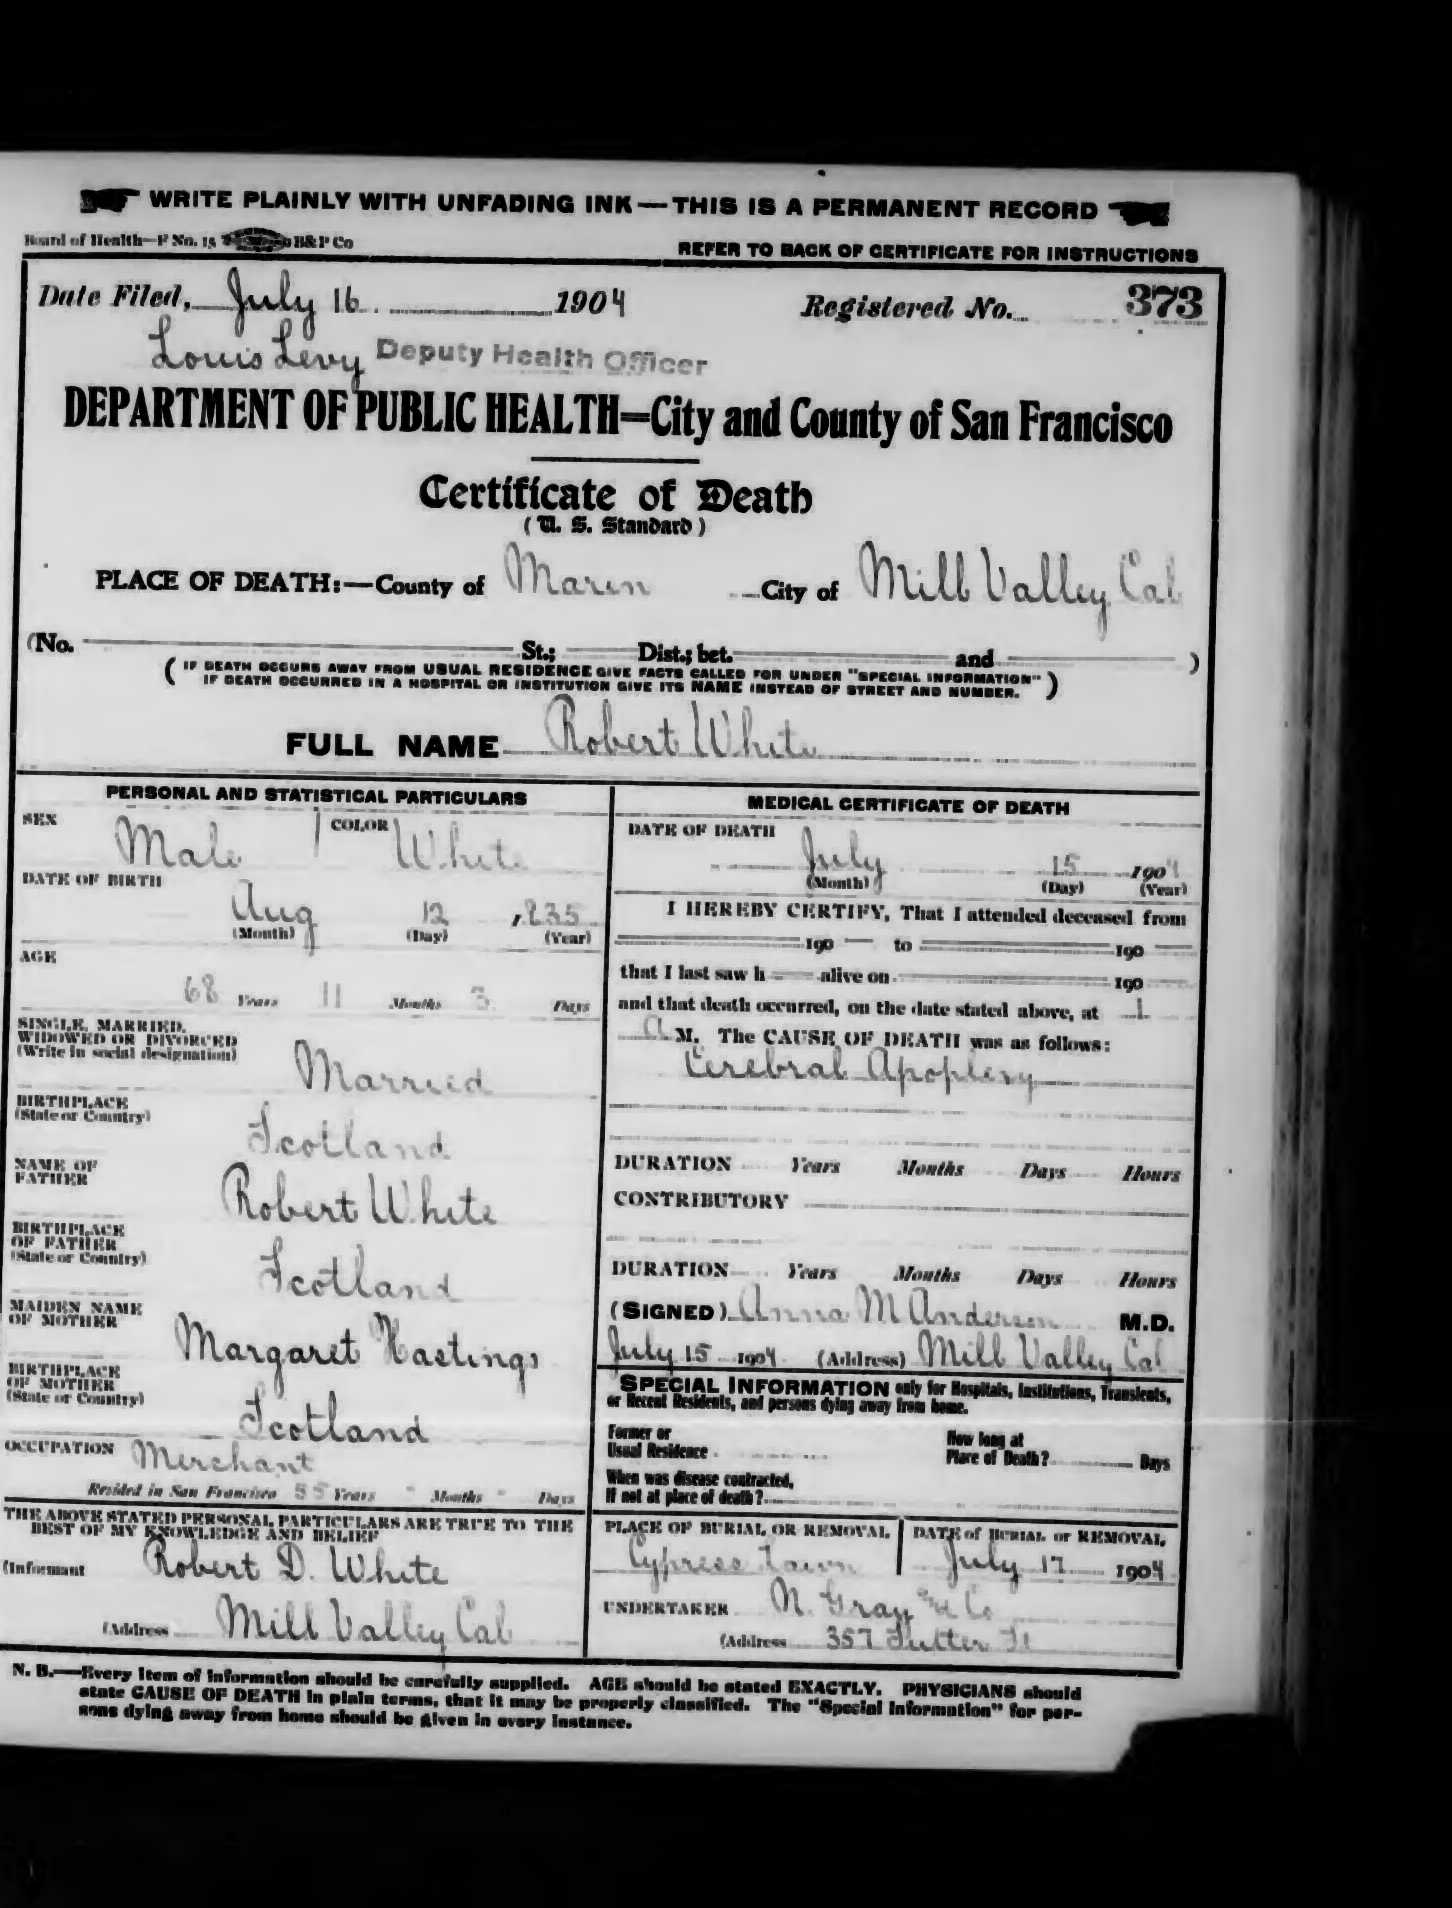 WRITE PLAINLY WITH UNFADING INK—THIS IS A PERMANENT RECORD
Board of Health—F No. 15 B&P Co
REFER TO BACK OF CERTIFICATE FOR INSTRUCTIONS
Date Filed, July 16 1904 Registered No. 373
Louis Levy Deputy Health Officer
DEPARTMENT OF PUBLIC HEALTH=City and County of San Francisco
Certificate of Death
(U. S. Standard)
PLACE OF DEATH:—County of Marin City of Mill Valley Cal
(No. St.; Dist.; bet. and )
(IF DEATH OCCURS AWAY FROM USUAL RESIDENCE GIVE FACTS CALLED FOR UNDER "SPECIAL INFORMATION"
IF DEATH OCCURRED IN A HOSPITAL OR INSTITUTION GIVE ITS NAME INSTEAD OF STREET AND NUMBER.)
FULL NAME Robert White
PERSONAL AND STATISTICAL PARTICULARS
SEX Male COLOR White
DATE OF BIRTH
Aug 12 , 835
(Month) (Day) (Year)
AGE
68 Years 11 Months 3 Days
SINGLE, MARRIED,
WIDOWED OR DIVORCED
(Write in social designation)
Married
BIRTHPLACE
(State or Country)
Scotland
NAME OF
FATHER
Robert White
BIRTHPLACE
OF FATHER
(State or Country)
Scotland
MAIDEN NAME
OF MOTHER
Margaret Hastings
BIRTHPLACE
OF MOTHER
(State or Country)
Scotland
OCCUPATION Merchant
Resided in San Francisco 55 Years - Months - Days
THE ABOVE STATED PERSONAL PARTICULARS ARE TRUE TO THE
BEST OF MY KNOWLEDGE AND BELIEF
(Informant Robert D. White
(Address Mill Valley Cal
MEDICAL CERTIFICATE OF DEATH
DATE OF DEATH
July 15 1904
(Month) (Day) (Year)
I HEREBY CERTIFY, That I attended deceased from
190 to 190
that I last saw h alive on 190
and that death occurred, on the date stated above, at 1
A M. The CAUSE OF DEATH was as follows:
Cerebral Apoplexy
DURATION Years Months Days Hours
CONTRIBUTORY
DURATION Years Months Days Hours
(SIGNED) Anna M Anderson M.D.
July 15 1904 (Address) Mill Valley Cal
SPECIAL INFORMATION only for Hospitals, Institutions, Transients,
or Recent Residents, and persons dying away from home.
Former or
Usual Residence
How long at
Place of Death? Days
When was disease contracted,
If not at place of death?
PLACE OF BURIAL OR REMOVAL
Cypress Lawn
DATE of BURIAL or REMOVAL
July 17 1904
UNDERTAKER N. Gray & Co
(Address 357 Sutter St
N. B.—Every item of information should be carefully supplied. AGE should be stated EXACTLY. PHYSICIANS should
state CAUSE OF DEATH in plain terms, that it may be properly classified. The "Special Information" for per-
sons dying away from home should be given in every instance.